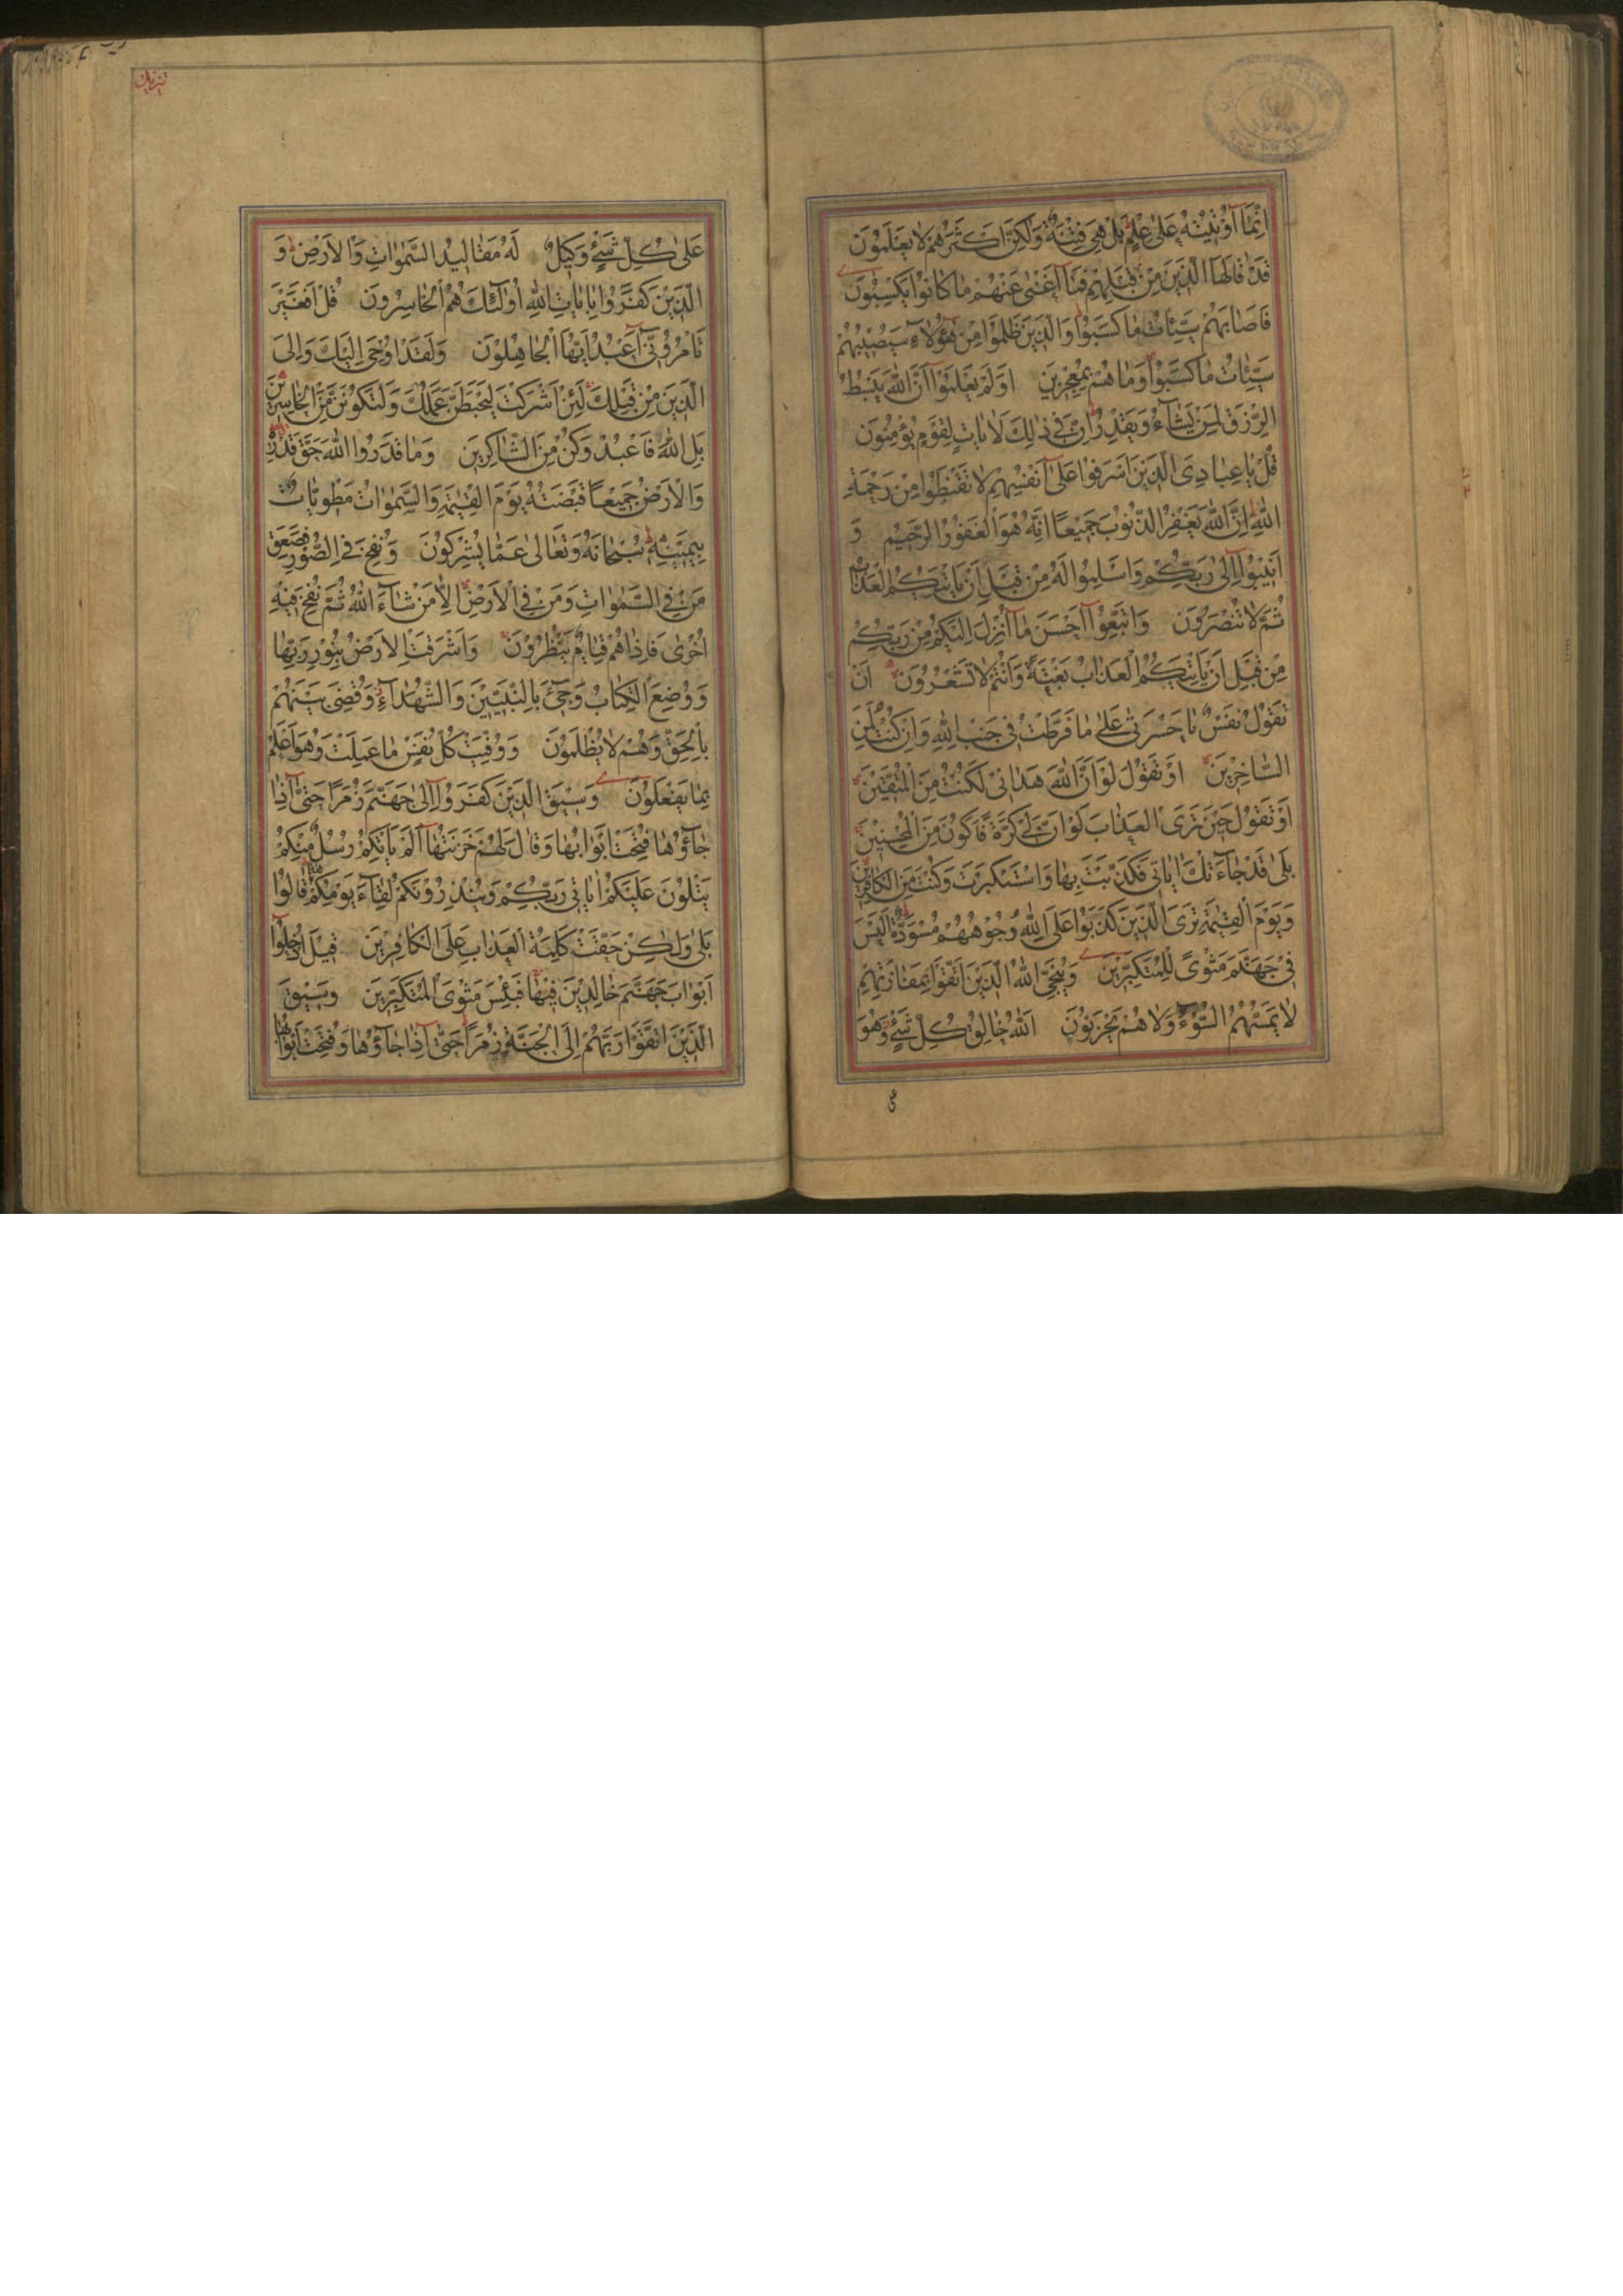 اِنَّمَا اُوْتِيْتُهُ عَلٰى عِلْمٍ بَلْ هِيَ فِتْنَةٌ وَلٰكِنَّ اَكْثَرَهُمْ لَا يَعْلَمُوْنَ
قَدْ قَالَهَا الَّذِيْنَ مِنْ قَبْلِهِمْ فَمَا اَغْنٰى عَنْهُمْ مَا كَانُوْا يَكْسِبُوْنَ
فَاَصَابَهُمْ سَيِّئَاتُ مَا كَسَبُوْا وَالَّذِيْنَ ظَلَمُوْا مِنْ هٰؤُلَاۤءِ سَيُصِيْبُهُمْ
سَيِّئَاتُ مَا كَسَبُوْا وَمَا هُمْ بِمُعْجِزِيْنَ اَوَلَمْ يَعْلَمُوْا اَنَّ اللهَ يَبْسُطُ
الرِّزْقَ لِمَنْ يَشَاۤءُ وَيَقْدِرُ اِنَّ فِيْ ذٰلِكَ لَاٰيَاتٍ لِقَوْمٍ يُؤْمِنُوْنَ
قُلْ يَا عِبَادِيَ الَّذِيْنَ اَسْرَفُوْا عَلٰى اَنْفُسِهِمْ لَا تَقْنَطُوْا مِنْ رَحْمَةِ
اللهِ اِنَّ اللهَ يَغْفِرُ الذُّنُوْبَ جَمِيْعًا اِنَّهُ هُوَ الْغَفُوْرُ الرَّحِيْمُ وَ
اَنِيْبُوْا اِلٰى رَبِّكُمْ وَاَسْلِمُوْا لَهُ مِنْ قَبْلِ اَنْ يَاْتِيَكُمُ الْعَذَابُ
ثُمَّ لَا تُنْصَرُوْنَ وَاتَّبِعُوْا اَحْسَنَ مَا اُنْزِلَ اِلَيْكُمْ مِنْ رَبِّكُمْ
مِنْ قَبْلِ اَنْ يَاْتِيَكُمُ الْعَذَابُ بَغْتَةً وَاَنْتُمْ لَا تَشْعُرُوْنَ اَنْ
تَقُوْلَ نَفْسٌ يَا حَسْرَتٰى عَلٰى مَا فَرَّطْتُ فِيْ جَنْبِ اللهِ وَاِنْ كُنْتُ لَمِنَ
السَّاخِرِيْنَ اَوْ تَقُوْلَ لَوْ اَنَّ اللهَ هَدَانِيْ لَكُنْتُ مِنَ الْمُتَّقِيْنَ
اَوْ تَقُوْلَ حِيْنَ تَرَى الْعَذَابَ لَوْ اَنَّ لِيْ كَرَّةً فَاَكُوْنَ مِنَ الْمُحْسِنِيْنَ
بَلٰى قَدْ جَاۤءَتْكَ اٰيَاتِيْ فَكَذَّبْتَ بِهَا وَاسْتَكْبَرْتَ وَكُنْتَ مِنَ الْكَافِرِيْنَ
وَيَوْمَ الْقِيٰمَةِ تَرَى الَّذِيْنَ كَذَبُوْا عَلَى اللهِ وُجُوْهُهُمْ مُسْوَدَّةٌ اَلَيْسَ
فِيْ جَهَنَّمَ مَثْوًى لِلْمُتَكَبِّرِيْنَ وَيُنَجِّي اللهُ الَّذِيْنَ اتَّقَوْا بِمَفَازَتِهِمْ
لَا يَمَسُّهُمُ السُّوْۤءُ وَلَا هُمْ يَحْزَنُوْنَ اَللهُ خَالِقُ كُلِّ شَيْءٍ وَهُوَ
تنزيل
عَلٰى كُلِّ شَيْءٍ وَكِيْلٌ لَهُ مَقَالِيْدُ السَّمٰوَاتِ وَالْاَرْضِ وَ
الَّذِيْنَ كَفَرُوْا بِاٰيَاتِ اللهِ اُولٰۤئِكَ هُمُ الْخَاسِرُوْنَ قُلْ اَفَغَيْرَ
اللهِ تَاْمُرُوْنِّيْ اَعْبُدُ اَيُّهَا الْجَاهِلُوْنَ وَلَقَدْ اُوْحِيَ اِلَيْكَ وَاِلَى
الَّذِيْنَ مِنْ قَبْلِكَ لَئِنْ اَشْرَكْتَ لَيَحْبَطَنَّ عَمَلُكَ وَلَتَكُوْنَنَّ مِنَ الْخَاسِرِيْنَ
بَلِ اللهَ فَاعْبُدْ وَكُنْ مِنَ الشَّاكِرِيْنَ وَمَا قَدَرُوا اللهَ حَقَّ قَدْرِهِ
وَالْاَرْضُ جَمِيْعًا قَبْضَتُهُ يَوْمَ الْقِيٰمَةِ وَالسَّمٰوَاتُ مَطْوِيَّاتٌ
بِيَمِيْنِهِ سُبْحَانَهُ وَتَعَالٰى عَمَّا يُشْرِكُوْنَ وَنُفِخَ فِي الصُّوْرِ فَصَعِقَ
مَنْ فِي السَّمٰوَاتِ وَمَنْ فِي الْاَرْضِ اِلَّا مَنْ شَاۤءَ اللهُ ثُمَّ نُفِخَ فِيْهِ
اُخْرٰى فَاِذَا هُمْ قِيَامٌ يَنْظُرُوْنَ وَاَشْرَقَتِ الْاَرْضُ بِنُوْرِ رَبِّهَا
وَوُضِعَ الْكِتَابُ وَجِيْئَ بِالنَّبِيِّيْنَ وَالشُّهَدَاۤءِ وَقُضِيَ بَيْنَهُمْ
بِالْحَقِّ وَهُمْ لَا يُظْلَمُوْنَ وَوُفِّيَتْ كُلُّ نَفْسٍ مَا عَمِلَتْ وَهُوَ اَعْلَمُ
بِمَا يَفْعَلُوْنَ وَسِيْقَ الَّذِيْنَ كَفَرُوْا اِلٰى جَهَنَّمَ زُمَرًا حَتّٰى اِذَا
جَاۤءُوْهَا فُتِحَتْ اَبْوَابُهَا وَقَالَ لَهُمْ خَزَنَتُهَا اَلَمْ يَاْتِكُمْ رُسُلٌ مِنْكُمْ
يَتْلُوْنَ عَلَيْكُمْ اٰيَاتِ رَبِّكُمْ وَيُنْذِرُوْنَكُمْ لِقَاۤءَ يَوْمِكُمْ هٰذَا قَالُوْا
بَلٰى وَلٰكِنْ حَقَّتْ كَلِمَةُ الْعَذَابِ عَلَى الْكَافِرِيْنَ قِيْلَ ادْخُلُوْا
اَبْوَابَ جَهَنَّمَ خَالِدِيْنَ فِيْهَا فَبِئْسَ مَثْوَى الْمُتَكَبِّرِيْنَ وَسِيْقَ
الَّذِيْنَ اتَّقَوْا رَبَّهُمْ اِلَى الْجَنَّةِ زُمَرًا حَتّٰى اِذَا جَاۤءُوْهَا وَفُتِحَتْ اَبْوَابُهَا